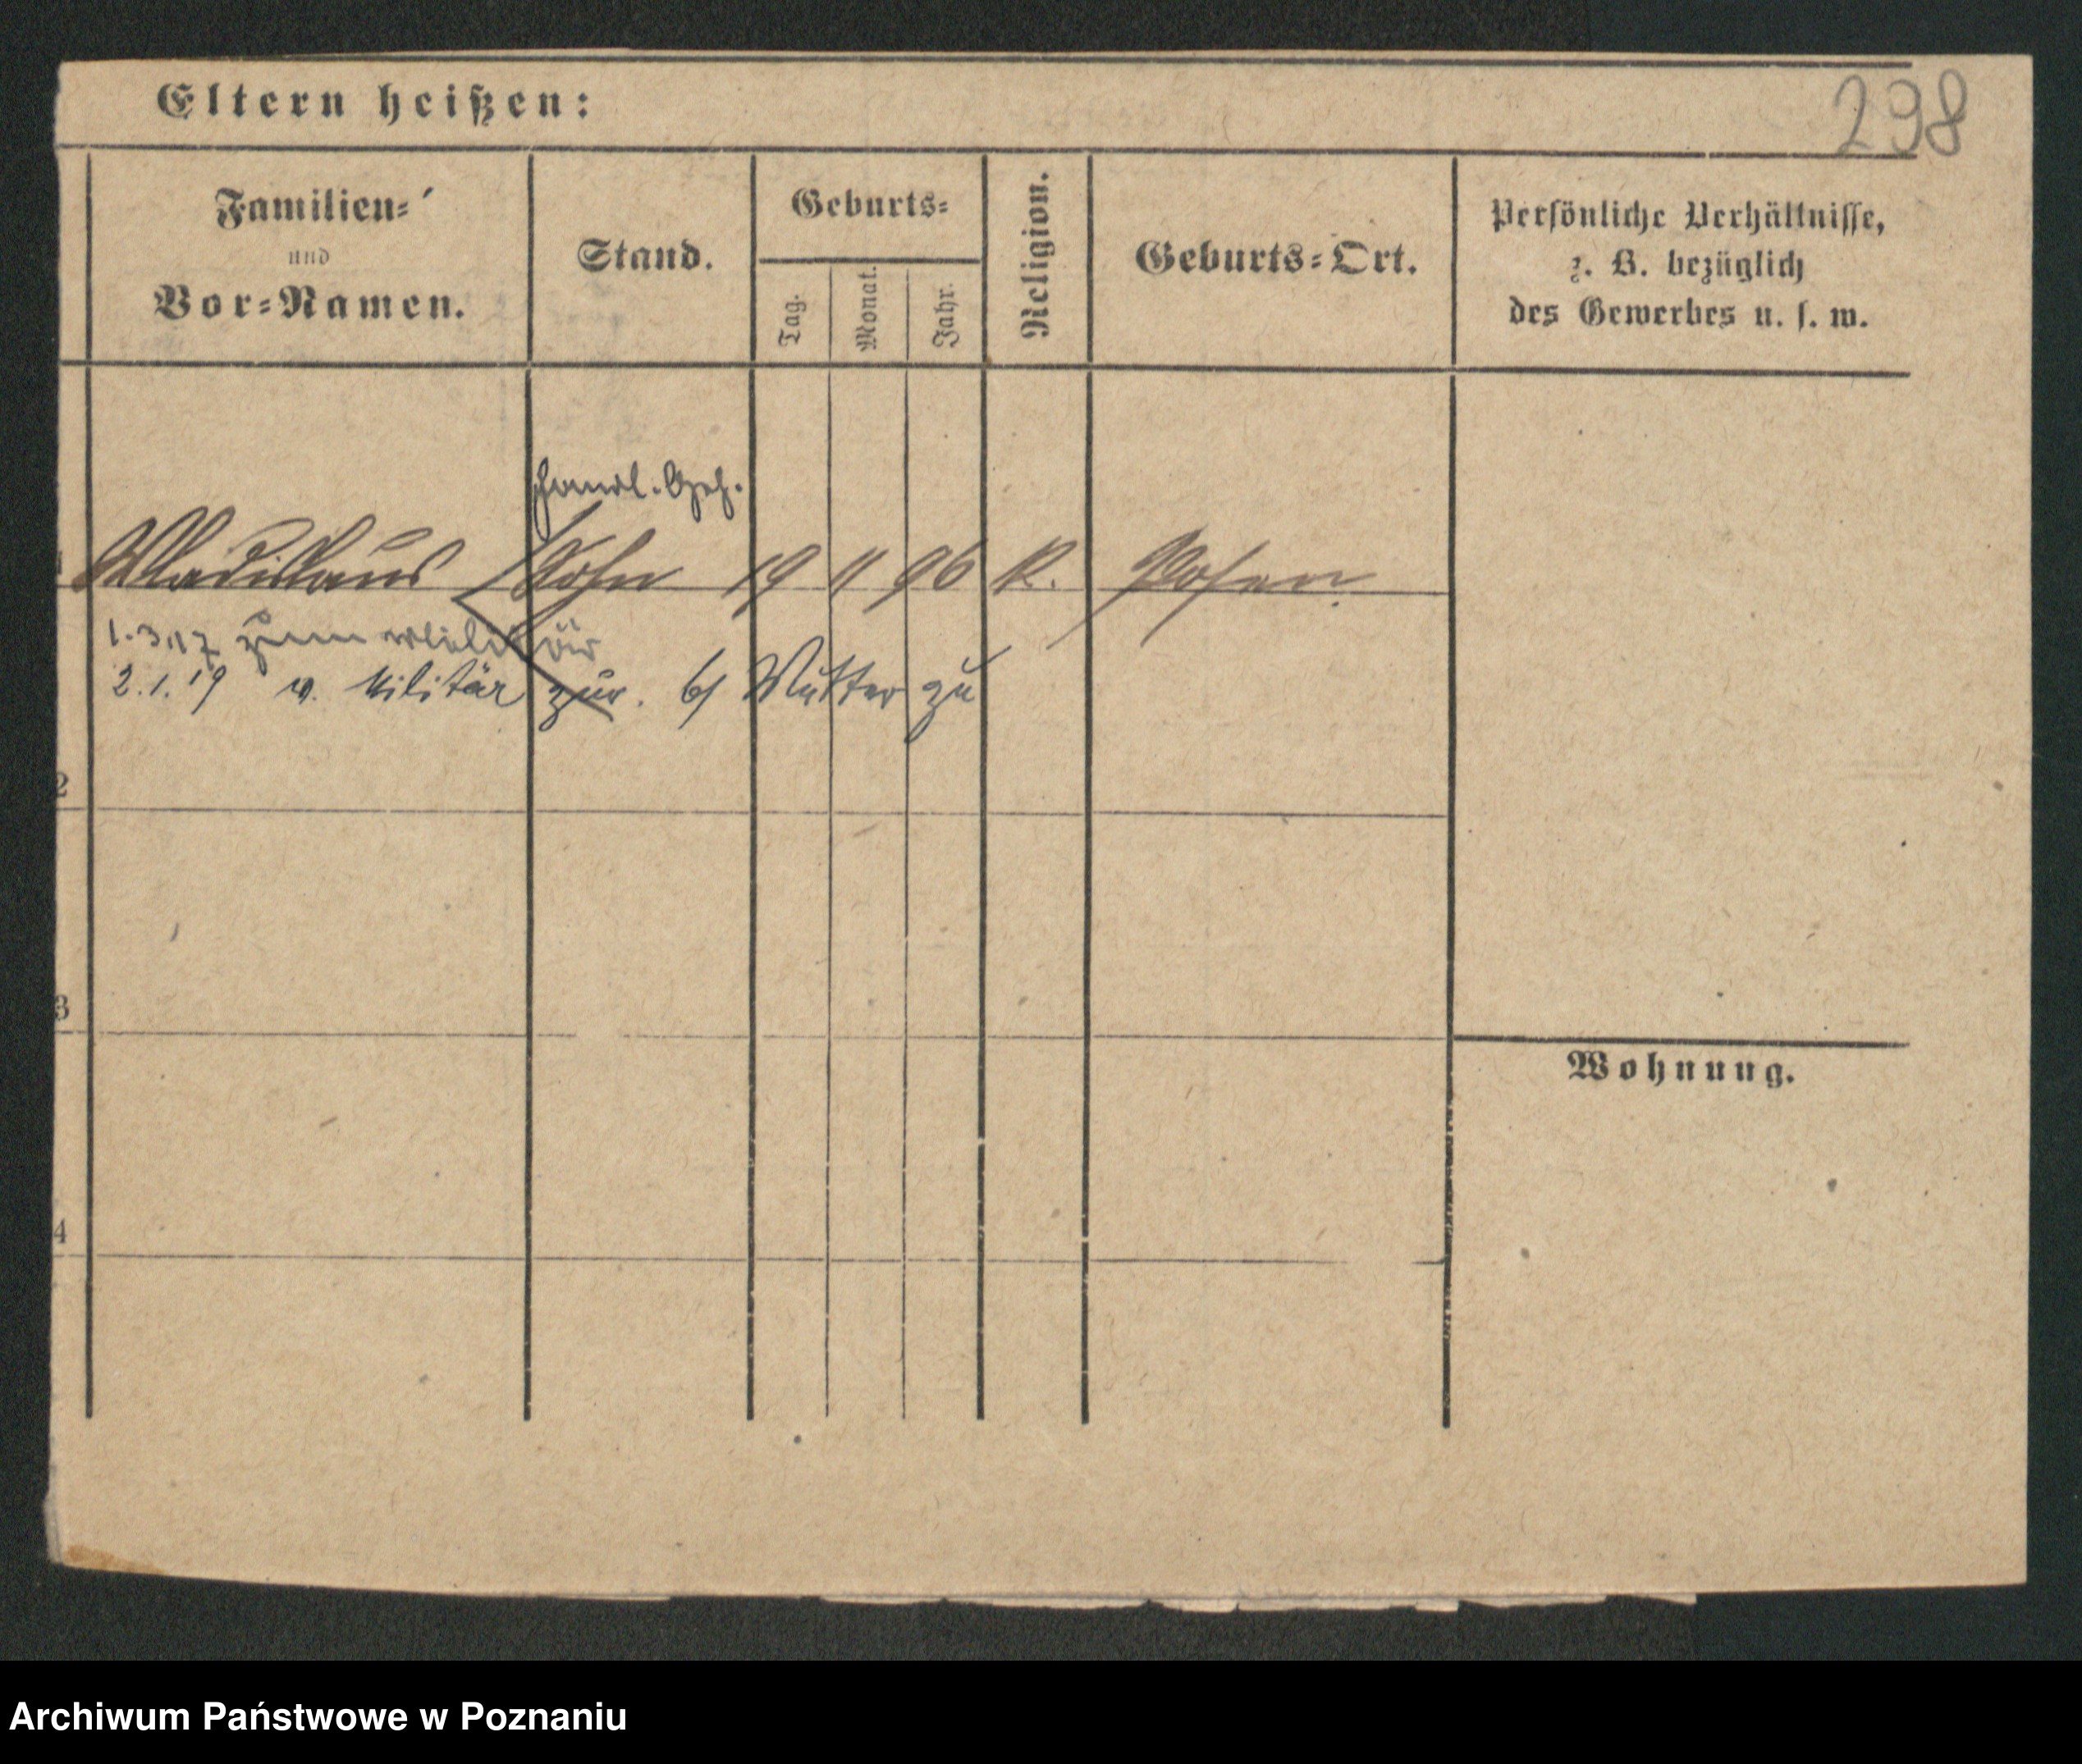 298
Eltern heißen:
Familien-
und
Vor-Namen.
Stand.
Geburts-
Tag.
Monat.
Jahr.
Religion.
Geburts-Ort.
Persönliche Verhältnisse,
z. B. bezüglich
des Gewerbes u. s. w.
Handl. Geh.
Wladislaus Sohn 19 11 96 K. Posen
1.3.17 zum Militär
2.1.19 v. Militär zur. b/ Mutter zu
2
3
Wohnung.
4
Archiwum Państwowe w Poznaniu